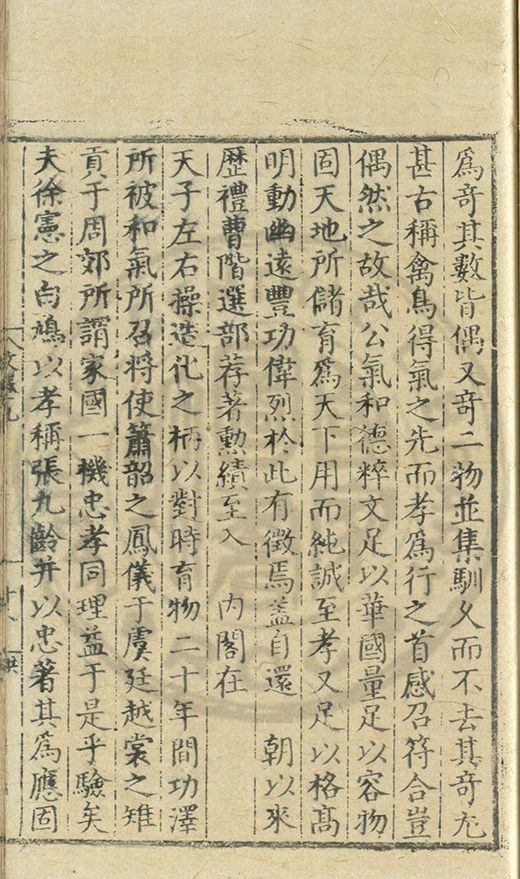 為奇其數皆偶又奇二物並集馴久而不去其奇尤
甚古稱禽鳥得氣之先而孝為行之首感召符合豈
偶然之故哉公氣和德粹文足以華國量足以容物
固天地所儲育為天下用而純誠至孝又足以格高
明動幽遠豐功偉烈於此有徵焉盖自還 朝以來
歴禮曹階選部荐著勳績至入 內閣在
天子左右操造化之柄以對時育物二十年間功澤
所被和氣所召將使簫韶之鳳儀于虞廷越裳之雉
貢于周郊所謂家國一機忠孝同理益于是乎驗矣
夫徐憲之白鳩以孝稱張九齡并以忠著其為應固